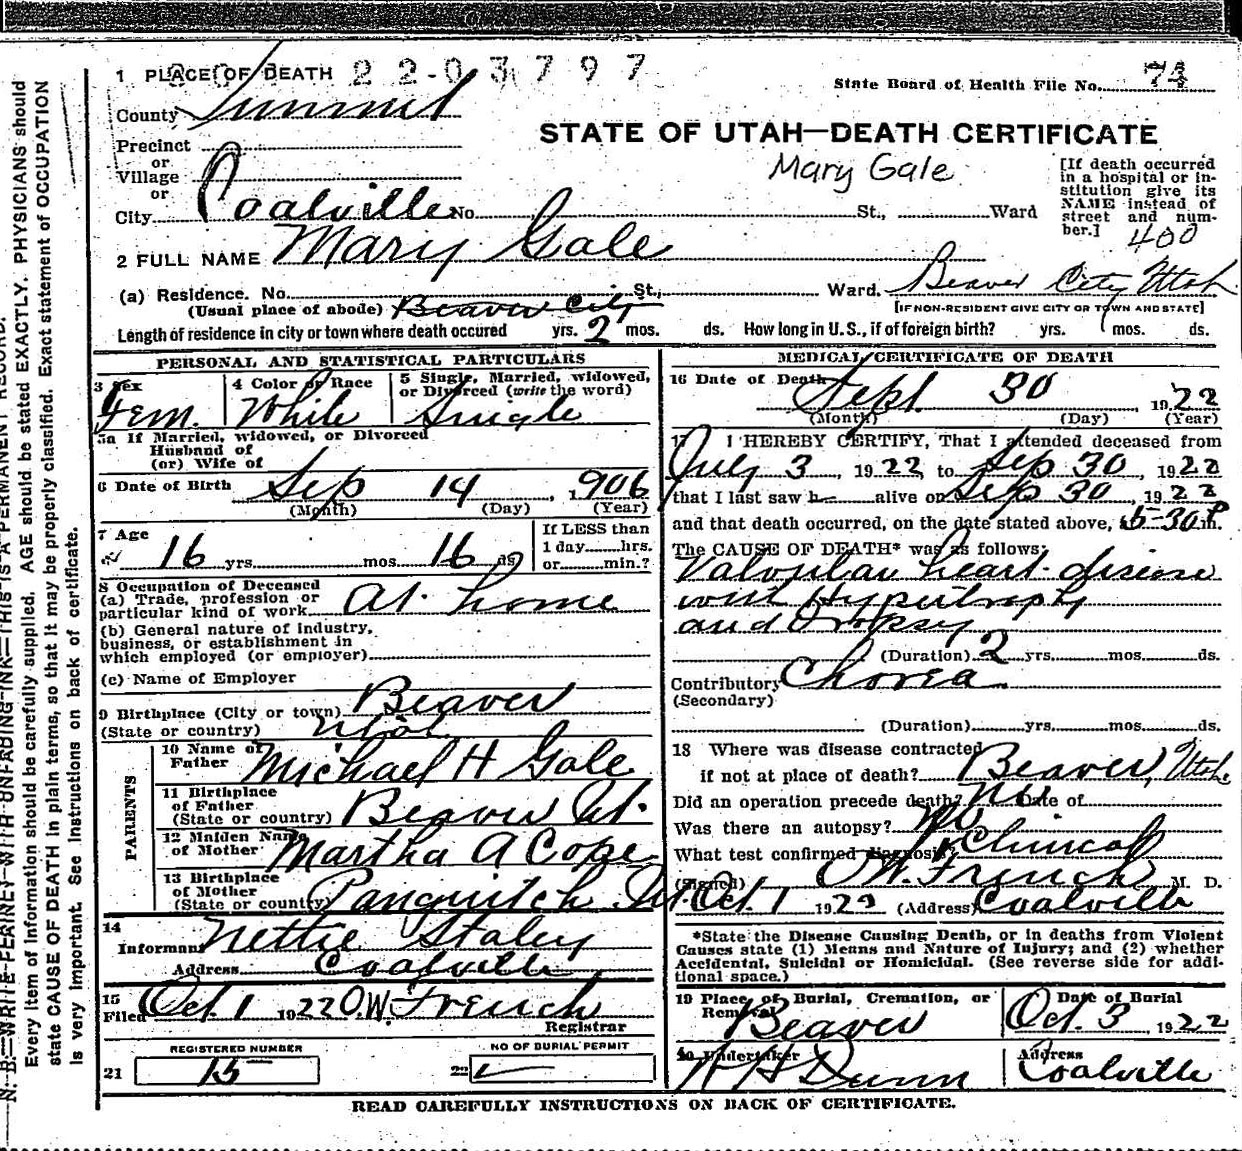 1 PLACE OF DEATH 22-03797
State Board of Health File No. 74
County Summit
STATE OF UTAH—DEATH CERTIFICATE
Precinct
or
Village
or
City Coalville No. St., Ward
Mary Gale
[If death occurred
in a hospital or in-
stitution give its
NAME instead of
street and num-
ber.]
400
2 FULL NAME Mary Gale
(a) Residence. No. St., Ward. Beaver City Utah
(Usual place of abode) Beaver City
[IF NON-RESIDENT GIVE CITY OR TOWN AND STATE]
Length of residence in city or town where death occured yrs. 2 mos. ds. How long in U.S., if of foreign birth? yrs. mos. ds.
PERSONAL AND STATISTICAL PARTICULARS
3 Sex
Fem.
4 Color or Race
White
5 Single, Married, widowed,
or Divorced (write the word)
Single
5a If Married, widowed, or Divorced
Husband of
(or) Wife of
6 Date of Birth Sep 14, 1906
(Month) (Day) (Year)
7 Age
16 yrs. mos. 16 ds
If LESS than
1 day hrs.
or min.?
8 Occupation of Deceased
(a) Trade, profession or
particular kind of work At home
(b) General nature of industry,
business, or establishment in
which employed (or employer)
(c) Name of Employer
9 Birthplace (City or town) Beaver
(State or country) Utah
PARENTS
10 Name of
Father Michael H Gale
11 Birthplace
of Father
(State or country) Beaver Ut.
12 Maiden Name
of Mother Martha A Cope
13 Birthplace
of Mother
(State or country) Panguitch Ut.
14
Informant Nettie Staley
Address Coalville
15
Filed Oct. 1 1922 O.W. French
Registrar
REGISTERED NUMBER
21 15
NO OF BURIAL PERMIT
22
MEDICAL CERTIFICATE OF DEATH
16 Date of Death Sept. 30, 1922
(Month) (Day) (Year)
17 I HEREBY CERTIFY, That I attended deceased from
July 3, 1922 to Sep 30, 1922
that I last saw h alive on Sep 30, 1922
and that death occurred, on the date stated above, 5-30 P m.
The CAUSE OF DEATH* was as follows:
Valvular heart disease
with Hypertrophy
and Dropsy
(Duration) 2 yrs. mos. ds.
Contributory Chorea
(Secondary)
(Duration) yrs. mos. ds.
18 Where was disease contracted
if not at place of death? Beaver, Utah
Did an operation precede death? No Date of
Was there an autopsy? No
What test confirmed diagnosis? Clinical
(Signed) O.W. French M. D.
Oct. 1 1922 (Address) Coalville
*State the Disease Causing Death, or in deaths from Violent
Causes state (1) Means and Nature of Injury; and (2) whether
Accidental, Suicidal or Homicidal. (See reverse side for addi-
tional space.)
19 Place of Burial, Cremation, or
Removal Beaver
Date of Burial
Oct. 3, 1922
20 Undertaker
Dunn
Address
Coalville
READ CAREFULLY INSTRUCTIONS ON BACK OF CERTIFICATE.
N. B.—WRITE PLAINLY WITH UNFADING INK—THIS IS A PERMANENT RECORD.
Every item of information should be carefully supplied. AGE should be stated EXACTLY. PHYSICIANS should
state CAUSE OF DEATH in plain terms, so that it may be properly classified. Exact statement of OCCUPATION
is very important. See Instructions on back of certificate.